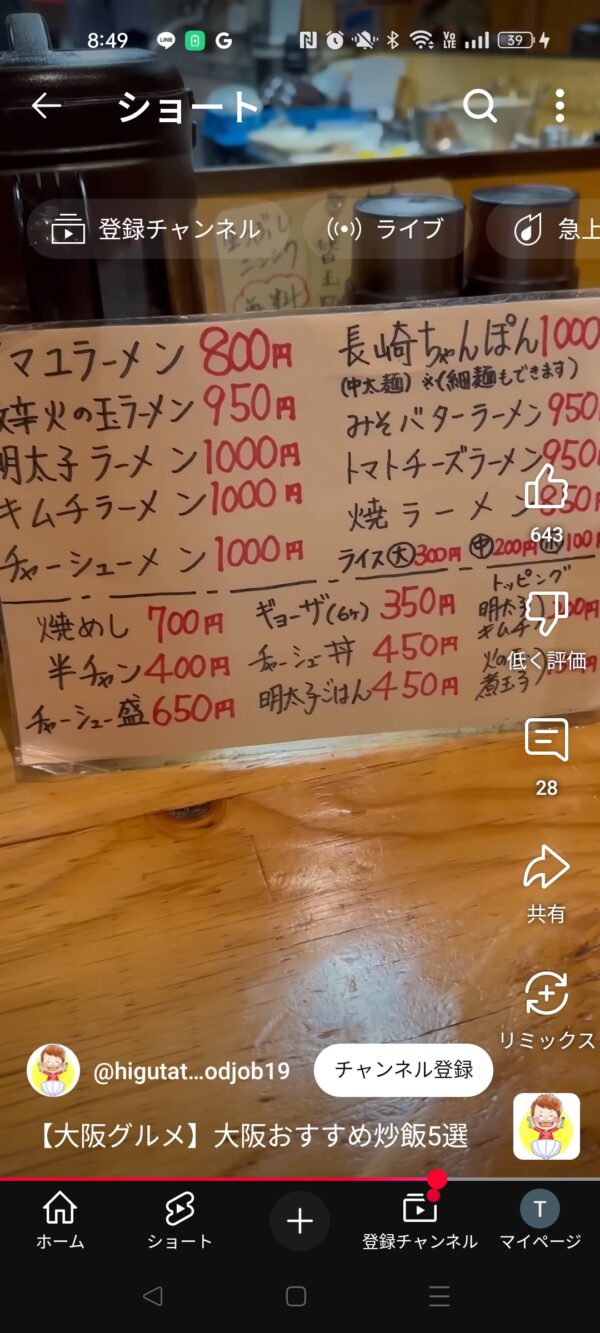 8:49
LINE
VO LTE
39
ショート
登録チャンネル
ライブ
急上
ニンニク
無料
替玉
マユラーメン 800円
辛火の玉ラーメン 950円
明太子ラーメン 1000円
キムチラーメン 1000円
チャーシューメン 1000円
長崎ちゃんぽん 1000
(中太麺) ※(細麺もできます)
みそバターラーメン 950
トマトチーズラーメン 950
焼ラーメン 850円
ライス 大 300円 中 200円 小 100
焼めし 700円
半チャン 400円
チャーシュー盛 650円
ギョーザ(6ヶ) 350円
チャーシュー丼 450円
明太子ごはん 450円
トッピング
明太子
キムチ
火の
煮玉子
643
低く評価
28
共有
リミックス
@higutat...odjob19
チャンネル登録
【大阪グルメ】大阪おすすめ炒飯5選
ホーム
ショート
登録チャンネル
T
マイページ